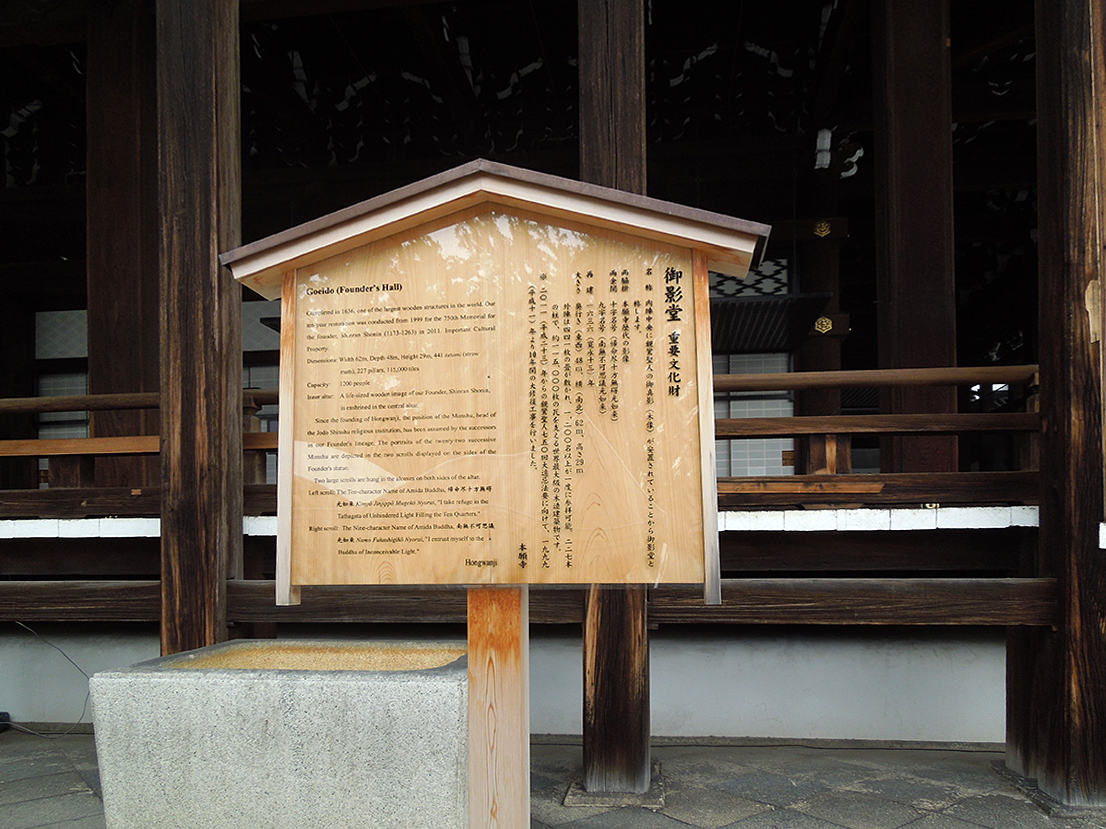 Goeido (Founder's Hall)
Completed in 1636, one of the largest wooden structures in the world. Our
ten year restoration was conducted from 1999 for the 750th Memorial for
the founder, Shinran Shonin (1173-1263) in 2011. Important Cultural
Property.
Dimensions: Width 62m, Depth 48m, Height 29m, 441 tatami (straw
mats), 227 pillars, 115,000 tiles
Capacity: 1200 people
Inner altar: A life-sized wooden image of our Founder, Shinran Shonin,
is enshrined in the central altar.
Since the founding of Hongwanji, the position of the Monshu, head of
the Jodo Shinshu religious institution, has been assumed by the successors
in our Founder's lineage. The portraits of the twenty-two successive
Monshu are depicted in the two scrolls displayed on the sides of the
Founder's statue.
Two large scrolls are hung in the alcoves on both sides of the altar.
Left scroll: The Ten-character Name of Amida Buddha, 帰命尽十方無碍
光如来 Kimyō Jinjippō Mugekō Nyorai, "I take refuge in the
Tathagata of Unhindered Light Filling the Ten Quarters."
Right scroll: The Nine-character Name of Amida Buddha, 南無不可思議
光如来 Namo Fukashigikō Nyorai, "I entrust myself to the
Buddha of Inconceivable Light."
Hongwanji
御影堂 重要文化財
名称 内陣中央に親鸞聖人の御真影(木像)が安置されていることから御影堂と
称します。
両脇壇 本願寺歴代の影像
両余間 十字名号(帰命尽十方無碍光如来)
九字名号(南無不可思議光如来)
再建 一六三六(寛永十三)年
大きさ 奥行き(東西)48m、横(南北)62m、高さ29m
外陣は四四一枚の畳が敷かれ、一、二〇〇名以上が一度に参拝可能。二二七本
の柱で、約一一五、〇〇〇枚の瓦を支える世界最大級の木造建築物です。
※ 二〇一一(平成二十三)年からの親鸞聖人七五〇回大遠忌法要に向けて、一九九九
(平成十一)年より10年間の大修復工事を行いました。
本願寺